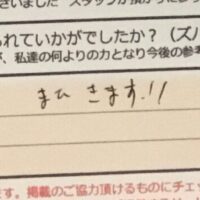 ざいました スタッフが頂かりに
られていかがでしたか？（ズバ
が、私達の何よりの力となり今後の参考
またきます!!
ます。掲載のご協力頂けるものにチェッ